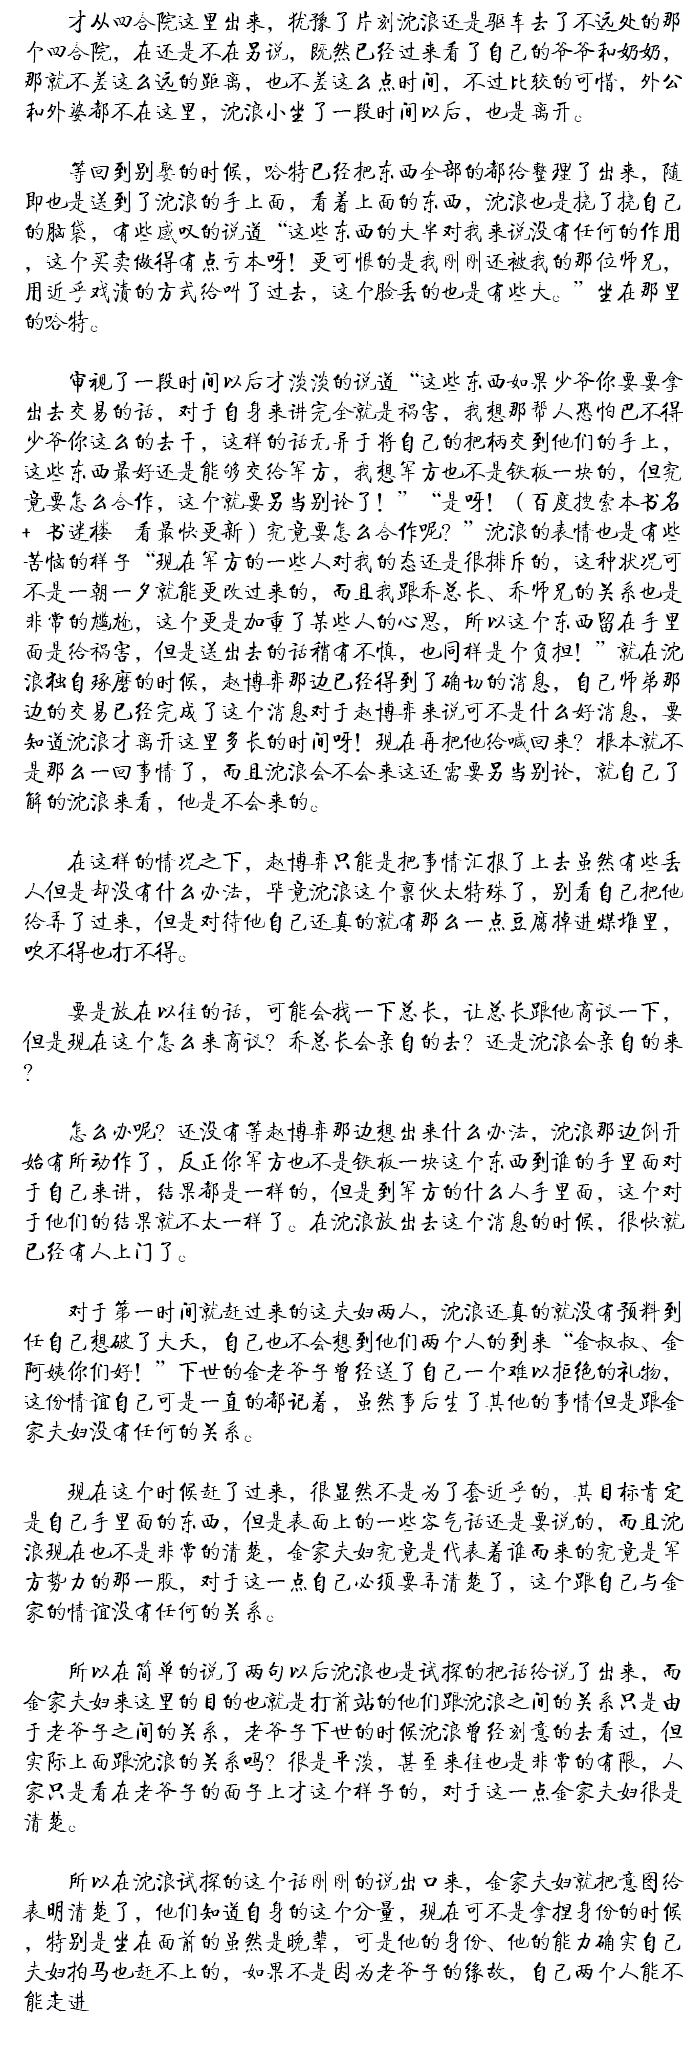 才从四合院这里出来，犹豫了片刻沈浪还是驱车去了不远处的那
个四合院，在还是不在另说，既然已经过来看了自己的爷爷和奶奶，
那就不差这么远的距离，也不差这么点时间，不过比较的可惜，外公
和外婆都不在这里，沈浪小坐了一段时间以后，也是离开。
等回到别墅的时候，哈特已经把东西全部的都给整理了出来，随
即也是送到了沈浪的手上面，看着上面的东西，沈浪也是挠了挠自己
的脑袋，有些感叹的说道“这些东西的大半对我来说没有任何的作用
，这个买卖做得有点亏本呀！更可恨的是我刚刚还被我的那位师兄，
用近乎戏渍的方式给叫了过去，这个脸丢的也是有些大。”坐在那里
的哈特。
审视了一段时间以后才淡淡的说道“这些东西如果少爷你要要拿
出去交易的话，对于自身来讲完全就是祸害，我想那帮人恐怕巴不得
少爷你这么的去干，这样的话无异于将自己的把柄交到他们的手上，
这些东西最好还是能够交给军方，我想军方也不是铁板一块的，但究
竟要怎么合作，这个就要另当别论了！”“是呀！（百度搜索本书名
+ 书迷楼 看最快更新）究竟要怎么合作呢？”沈浪的表情也是有些
苦恼的样子“现在军方的一些人对我的态还是很排斥的，这种状况可
不是一朝一夕就能更改过来的，而且我跟乔总长、乔师兄的关系也是
非常的尴尬，这个更是加重了某些人的心思，所以这个东西留在手里
面是给祸害，但是送出去的话稍有不慎，也同样是个负担！”就在沈
浪独自琢磨的时候，赵博弈那边已经得到了确切的消息，自己师弟那
边的交易已经完成了这个消息对于赵博弈来说可不是什么好消息，要
知道沈浪才离开这里多长的时间呀！现在再把他给喊回来？根本就不
是那么一回事情了，而且沈浪会不会来这还需要另当别论，就自己了
解的沈浪来看，他是不会来的。
在这样的情况之下，赵博弈只能是把事情汇报了上去虽然有些丢
人但是却没有什么办法，毕竟沈浪这个禀伙太特殊了，别看自己把他
给弄了过来，但是对待他自己还真的就有那么一点豆腐掉进煤堆里，
吹不得也打不得。
要是放在以往的话，可能会找一下总长，让总长跟他商议一下，
但是现在这个怎么来商议？乔总长会亲自的去？还是沈浪会亲自的来
？
怎么办呢？还没有等赵博弈那边想出来什么办法，沈浪那边倒开
始有所动作了，反正你军方也不是铁板一块这个东西到谁的手里面对
于自己来讲，结果都是一样的，但是到军方的什么人手里面，这个对
于他们的结果就不太一样了。在沈浪放出去这个消息的时候，很快就
已经有人上门了。
对于第一时间就赶过来的这夫妇两人，沈浪还真的就没有预料到
任自己想破了大天，自己也不会想到他们两个人的到来“金叔叔、金
阿姨你们好！”下世的金老爷子曾经送了自己一个难以拒绝的礼物，
这份情谊自己可是一直的都记着，虽然事后生了其他的事情但是跟金
家夫妇没有任何的关系。
现在这个时候赶了过来，很显然不是为了套近乎的，其目标肯定
是自己手里面的东西，但是表面上的一些客气话还是要说的，而且沈
浪现在也不是非常的清楚，金家夫妇究竟是代表着谁而来的究竟是军
方势力的那一股，对于这一点自己必须要弄清楚了，这个跟自己与金
家的情谊没有任何的关系。
所以在简单的说了两句以后沈浪也是试探的把话给说了出来，而
金家夫妇来这里的目的也就是打前站的他们跟沈浪之间的关系只是由
于老爷子之间的关系，老爷子下世的时候沈浪曾经刻意的去看过，但
实际上面跟沈浪的关系吗？很是平淡，甚至来往也是非常的有限，人
家只是看在老爷子的面子上才这个样子的，对于这一点金家夫妇很是
清楚。
所以在沈浪试探的这个话刚刚的说出口来，金家夫妇就把意图给
表明清楚了，他们知道自身的这个分量，现在可不是拿捏身份的时候
，特别是坐在面前的虽然是晚辈，可是他的身份、他的能力确实自己
夫妇拍马也赶不上的，如果不是因为老爷子的缘故，自己两个人能不
能走进